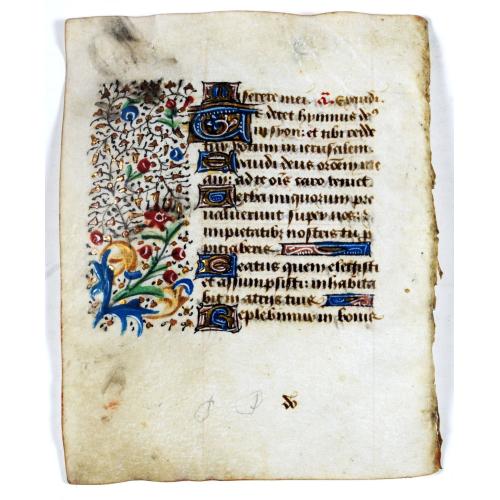 Miserere mei. a. Exaudi
Te decet hymnus dˢ
in syon: et tibi redde
tur votum in ierusalem.
Exaudi deus orōem me
am: ad te oīs caro veniet
Verba iniquorum pre
valuerunt super nos: et
impietatib; nostris tu p
pitiaberis
Beatus quem elegisti
et assumpsisti: inhabita
bit in atriis tuis
Replebimur in bonis